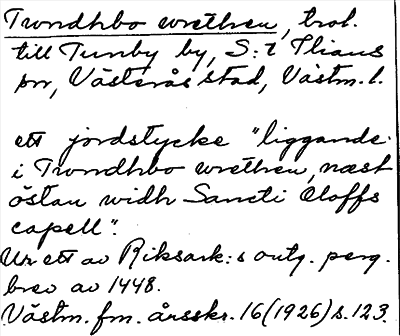 Trondhbo wrethen, trol.
till Tunby by, S:t Ilians
sn, Västerås stad, Västm. l.
ett jordstycke "liggande
i Trondhbo wrethen, næst
östan widh Sancti Oloffs
capell".
Ur ett av Riksark:s outg. perg.
brev av 1448.
Västm. fm. årsskr. 16 (1926) s. 123.